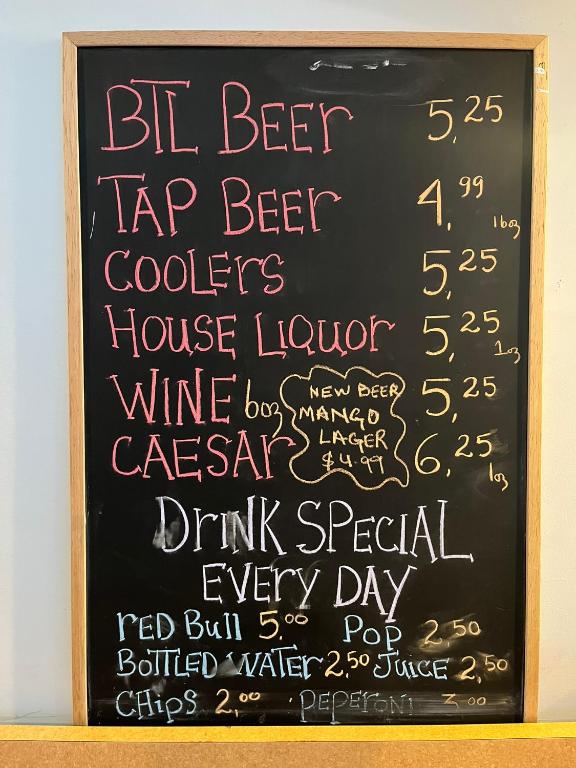 BTL BEER 5.25
TAP BEER 4.99 16oz
COOLERS 5.25
HOUSE LIQUOR 5.25 1oz
WINE 6oz 5.25
CAESAR 6.25 1oz
NEW BEER
MANGO
LAGER
$4.99
DRINK SPECIAL
EVERY DAY
RED Bull 5.00 POP 2.50
BOTTLED WATER 2.50 JUICE 2.50
CHIPS 2.00 PEPERONI 3.00